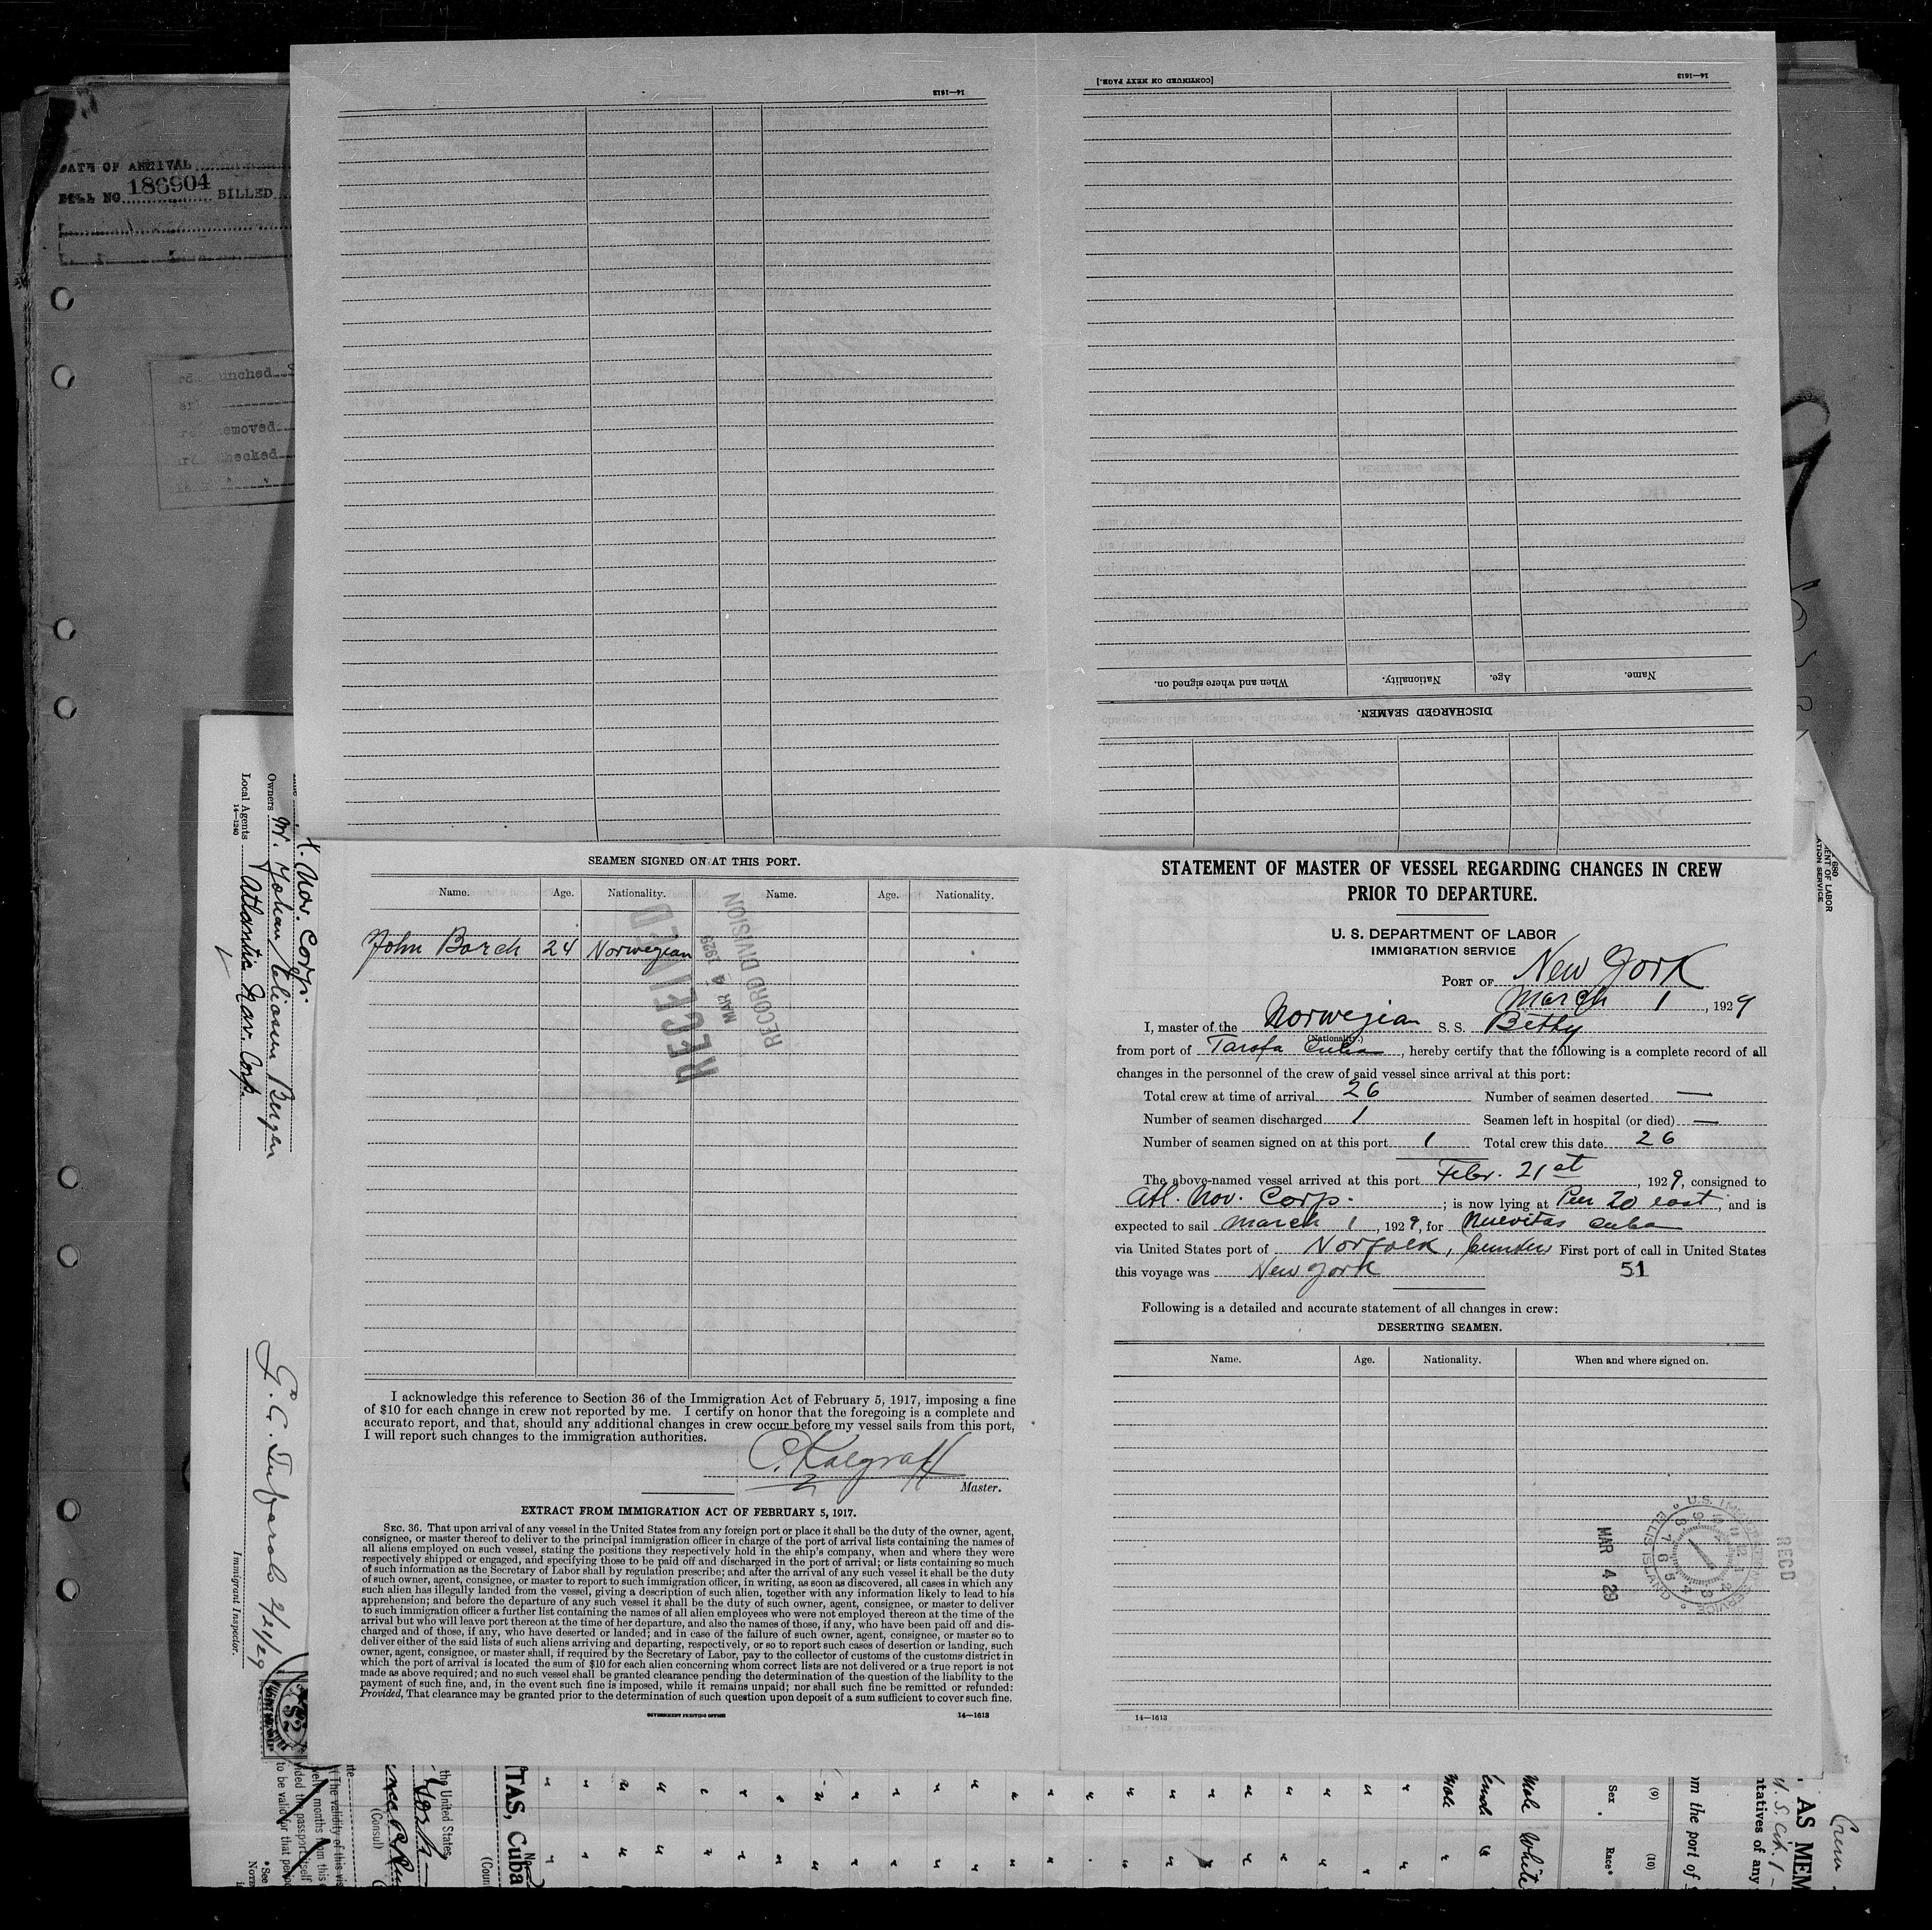 DATE OF ARRIVAL
BILL NO. 186904 BILLED
unched
emoved
hecked
14—1613
[CONTINUED ON NEXT PAGE.]
14—1613
Name. Age. Nationality. When and where signed on.
DISCHARGED SEAMEN.
Owners W. Johan Eliasen Bergen
Local Agents Atlantic Nav. Corp.
14—1240
Immigrant Inspector.
SEAMEN SIGNED ON AT THIS PORT.
Name. Age. Nationality. Name. Age. Nationality.
John Borch 24 Norwegian
RECEIVED
MAR 4 1929
RECORD DIVISION
I acknowledge this reference to Section 36 of the Immigration Act of February 5, 1917, imposing a fine
of $10 for each change in crew not reported by me. I certify on honor that the foregoing is a complete and
accurate report, and that, should any additional changes in crew occur before my vessel sails from this port,
I will report such changes to the immigration authorities.
C. Kalgraff
Master.
EXTRACT FROM IMMIGRATION ACT OF FEBRUARY 5, 1917.
SEC. 36. That upon arrival of any vessel in the United States from any foreign port or place it shall be the duty of the owner, agent,
consignee, or master thereof to deliver to the principal immigration officer in charge of the port of arrival lists containing the names of
all aliens employed on such vessel, stating the positions they respectively hold in the ship's company, when and where they were
respectively shipped or engaged, and specifying those to be paid off and discharged in the port of arrival; or lists containing so much
of such information as the Secretary of Labor shall by regulation prescribe; and after the arrival of any such vessel it shall be the duty
of such owner, agent, consignee, or master to report to such immigration officer, in writing, as soon as discovered, all cases in which any
such alien has illegally landed from the vessel, giving a description of such alien, together with any information likely to lead to his
apprehension; and before the departure of any such vessel it shall be the duty of such owner, agent, consignee, or master to deliver
to such immigration officer a further list containing the names of all alien employees who were not employed thereon at the time of the
arrival but who will leave port thereon at the time of her departure, and also the names of those, if any, who have been paid off and dis-
charged and of those, if any, who have deserted or landed; and in case of the failure of such owner, agent, consignee, or master so to
deliver either of the said lists of such aliens arriving and departing, respectively, or so to report such cases of desertion or landing, such
owner, agent, consignee, or master shall, if required by the Secretary of Labor, pay to the collector of customs of the customs district in
which the port of arrival is located the sum of $10 for each alien concerning whom correct lists are not delivered or a true report is not
made as above required; and no such vessel shall be granted clearance pending the determination of the question of the liability to the
payment of such fine, and, in the event such fine is imposed, while it remains unpaid; nor shall such fine be remitted or refunded:
Provided, That clearance may be granted prior to the determination of such question upon deposit of a sum sufficient to cover such fine.
GOVERNMENT PRINTING OFFICE 14—1613
STATEMENT OF MASTER OF VESSEL REGARDING CHANGES IN CREW
PRIOR TO DEPARTURE.
U. S. DEPARTMENT OF LABOR
IMMIGRATION SERVICE
PORT OF New York
March 1, 1929
I, master of the Norwegian S. S. Betty
(Nationality.)
from port of Tarafa Cuba, hereby certify that the following is a complete record of all
changes in the personnel of the crew of said vessel since arrival at this port:
Total crew at time of arrival 26 Number of seamen deserted —
Number of seamen discharged 1 Seamen left in hospital (or died) —
Number of seamen signed on at this port 1 Total crew this date 26
The above-named vessel arrived at this port Febr. 21st, 1929, consigned to
Atl. Nav. Corp.; is now lying at Pier 20 east, and is
expected to sail March 1, 1929, for Nuevitas Cuba
via United States port of Norfolk, First port of call in United States
this voyage was New York 51
Following is a detailed and accurate statement of all changes in crew:
DESERTING SEAMEN.
Name. Age. Nationality. When and where signed on.
RECD
MAR 4 29
U.S. IMMIGRATION SERVICE
ELLIS ISLAND
14—1613
TAS, Cuba
the United States
(Consul)
Male White
Male
(9) (10)
Sex Race*
om the port of
AS MEM
ntatives of any